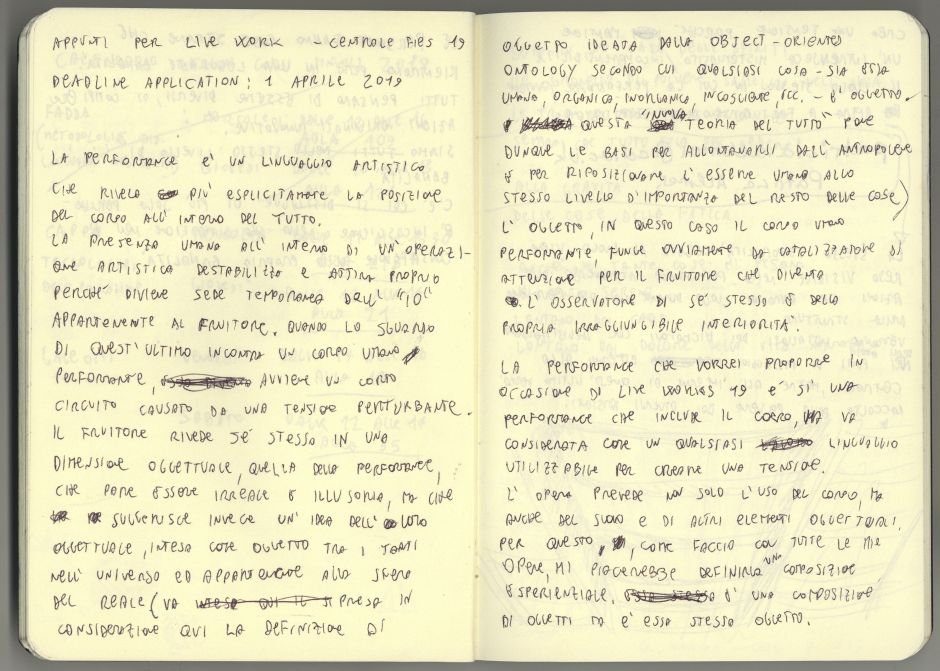 APPUNTI PER LIVE WORK - CENTRALE FIES 19
DEADLINE APPLICATION: 1 APRILE 2019
LA PERFORMANCE E' UN LINGUAGGIO ARTISTICO
CHE RIVELA PIÙ ESPLICITAMENTE LA POSIZIONE
DEL CORPO ALL'INTERNO DEL TUTTO.
LA PRESENZA UMANA ALL'INTERNO DI UN'OPERAZI-
ONE ARTISTICA DESTABILIZZA E ATTIRA PROPRIO
PERCHÉ DIVIENE SEDE TEMPORANEA DELL' "IO"
APPARTENENTE AL FRUITORE. QUANDO LO SGUARDO
DI QUEST'ULTIMO INCONTRA UN CORPO UMANO
PERFORMANTE, AVVIENE UN CORTO
CIRCUITO CAUSATO DA UNA TENSIONE PERTURBANTE.
IL FRUITORE RIVEDE SÉ STESSO IN UNA
DIMENSIONE OGGETTUALE, QUELLA DELLA PERFORMANCE,
CHE PARE ESSERE IRREALE E ILLUSORIA, MA CHE
SUGGERISCE INVECE UN'IDEA DELL'IO
OGGETTUALE, INTESO COME OGGETTO TRA I TANTI
NELL'UNIVERSO ED APPARTENENTE ALLA SFERA
DEL REALE (VA PRESA IN
CONSIDERAZIONE QUI LA DEFINIZIONE DI
OGGETTO IDEATA DALLA OBJECT-ORIENTED
ONTOLOGY SECONDO CUI QUALSIASI COSA - SIA ESSA
UMANA, ORGANICA, INORGANICA, INCOSCIENTE, ECC. - È OGGETTO.
QUESTA "NUOVA TEORIA DEL TUTTO" PONE
DUNQUE LE BASI PER ALLONTANARSI DALL'ANTROPOCENE
E PER RIPOSIZIONARE L'ESSERE UMANO ALLO
STESSO LIVELLO D'IMPORTANZA DEL RESTO DELLE COSE)
L'OGGETTO, IN QUESTO CASO IL CORPO UMANO
PERFORMANTE, FUNGE OVVIAMENTE DA CATALIZZATORE DI
ATTENZIONE PER IL FRUITORE CHE DIVENTA
L'OSSERVATORE DI SÉ STESSO E DELLA
PROPRIA IRRAGGIUNGIBILE INTERIORITÀ.
LA PERFORMANCE CHE VORREI PROPORRE IN
OCCASIONE DI LIVE WORKS 19 È SÌ UNA
PERFORMANCE CHE INCLUDE IL CORPO, MA VA
CONSIDERATA COME UN QUALSIASI LINGUAGGIO
UTILIZZABILE PER CREARE UNA TENSIONE.
L'OPERA PREVEDE NON SOLO L'USO DEL CORPO, MA
ANCHE DEL SUONO E DI ALTRI ELEMENTI OGGETTUALI.
PER QUESTO, COME FACCIO CON TUTTE LE MIE
OPERE, MI PIACEREBBE DEFINIRLA UNA COMPOSIZIONE
ESPERIENZIALE. È UNA COMPOSIZIONE
DI OGGETTI MA È ESSA STESSA OGGETTO.